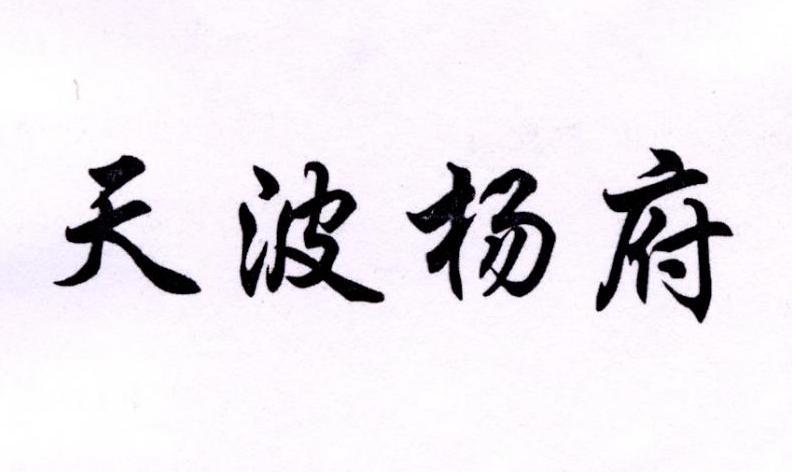 天波杨府